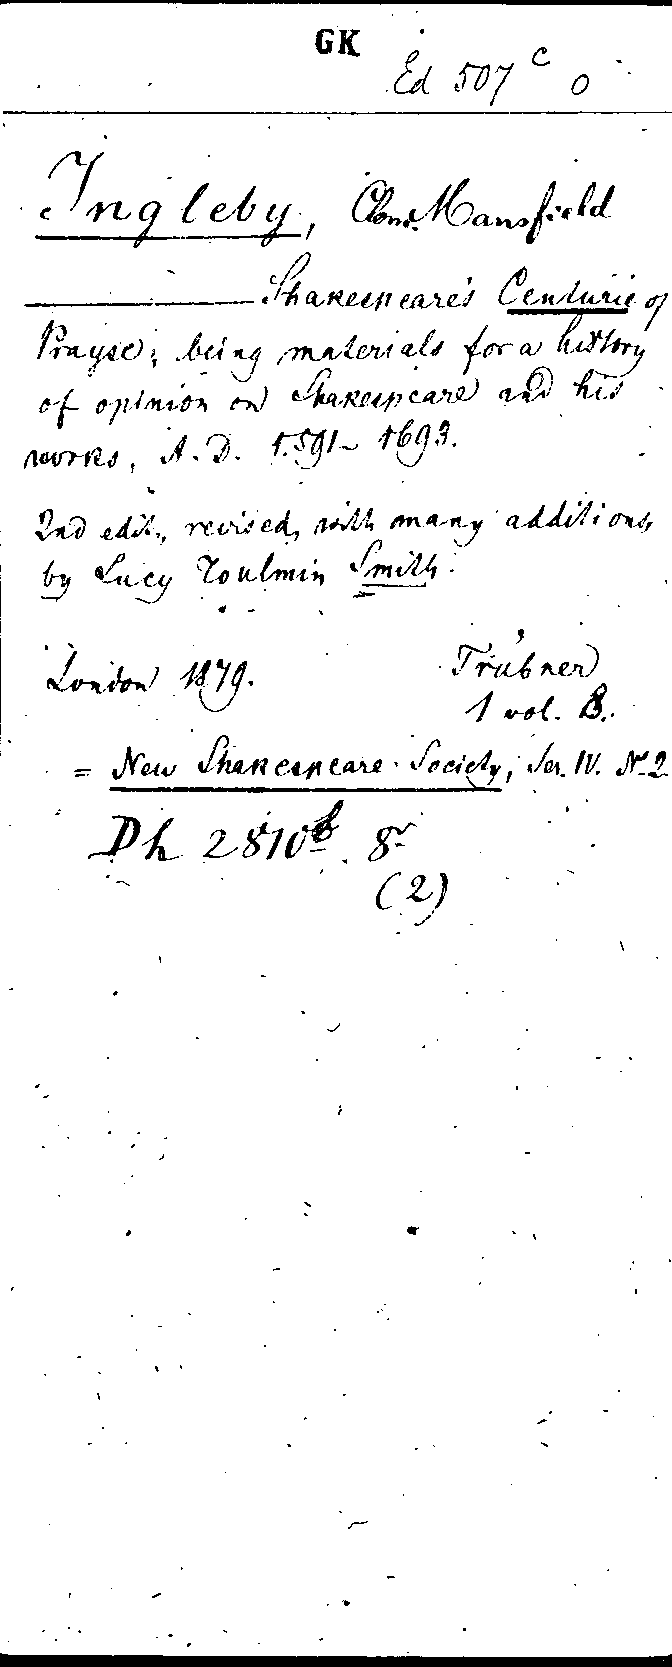 GK
Ed 507 c o
Ingleby, Clem. Mansfield
Shakespeare's Centurie of
Prayse; being materials for a history
of opinion on Shakespeare and his
works, A. D. 1591-1693.
2nd edit., revised, with many additions,
by Lucy Toulmin Smith.
London 1879. Trübner
1 vol. 8.
= New Shakespeare Society, Ser. IV. No 2
Dh 2810b 8r
(2)